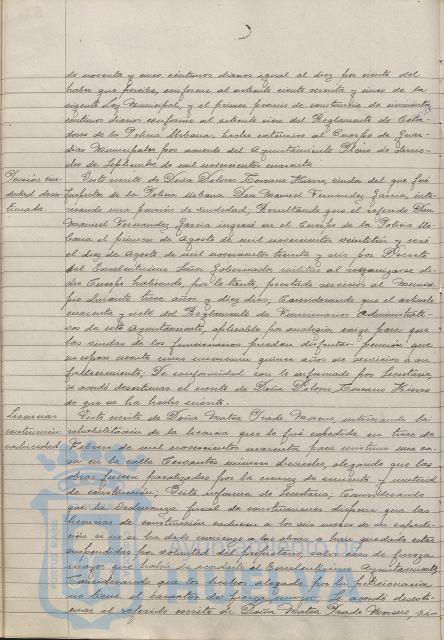 de noventa y cinco céntimos diarios igual al diez por ciento del
haber que percibe, conforme al artículo ciento sesenta y cinco de la
vigente Ley Municipal, y el primer premio de constancia de cincuenta
céntimos diarios conforme al artículo once del Reglamento de Cela-
dores de la Policía Urbana, hecho extensivo al Cuerpo de Guar-
dias Municipales por acuerdo del Ayuntamiento Pleno de
de Septiembre de mil novecientos cuarenta.
Pensión viu-
dedad deses-
timada.
Visto escrito de Doña Dolores Toscano Hierro, viuda del que fué
Inspector de la Policía Urbana Don Manuel Fernandez Garcia, inte-
resando una pensión de viudedad; Resultando que el referido Don
Manuel Fernandez Garcia ingresó en el Cuerpo de la Policía Ur-
bana el primero de Agosto de mil novecientos veintitrés y cesó
el diez de Agosto de mil novecientos treinta y seis por Decreto
del Excelentísimo Señor Gobernador militar al reorganizarse di-
cho Cuerpo habiendo, por lo tanto, prestado servicios al Munici-
pio durante trece años y diez días; Considerando que el artículo
cuarenta y siete del Reglamento de Funcionarios Administrati-
vos de este Ayuntamiento, aplicable por analogía, exige para que
las viudas de los funcionarios puedan disfrutar pensión que
su esposo cuente como minimum quince años de servicios a su
fallecimiento; De conformidad con lo informado por Secretaría,
se acordó desestimar el escrito de Doña Dolores Toscano Hierro
de que se ha hecho mérito.
Licencias
construcción
caducidad.
Visto escrito de Doña Matea Prado Moreno, interesando la
rehabilitación de la licencia que le fué expedida en trece de
Febrero de mil novecientos cuarenta para construir una ca-
sa en la calle Cervantes número dieciocho, alegando que las
obras fueron paralizadas por la escasez de cemento y material
de construcción; Visto informe de Secretaría; Considerando
que la Ordenanza fiscal de construcciones dispone que las
licencias de construcción caducan a los seis meses de su expedi-
ción si no se ha dado comienzo a las obras o han quedado estas
suspendidas por voluntad del propietario, salvo caso de fuerza
mayor que habrá de acordarlo el Excelentísimo Ayuntamiento;
Considerando que los hechos alegados por la peticionaria
no tiene el carácter de fuerza mayor; Se acordó desesti-
mar el referido escrito de Doña Matea Prado Moreno,